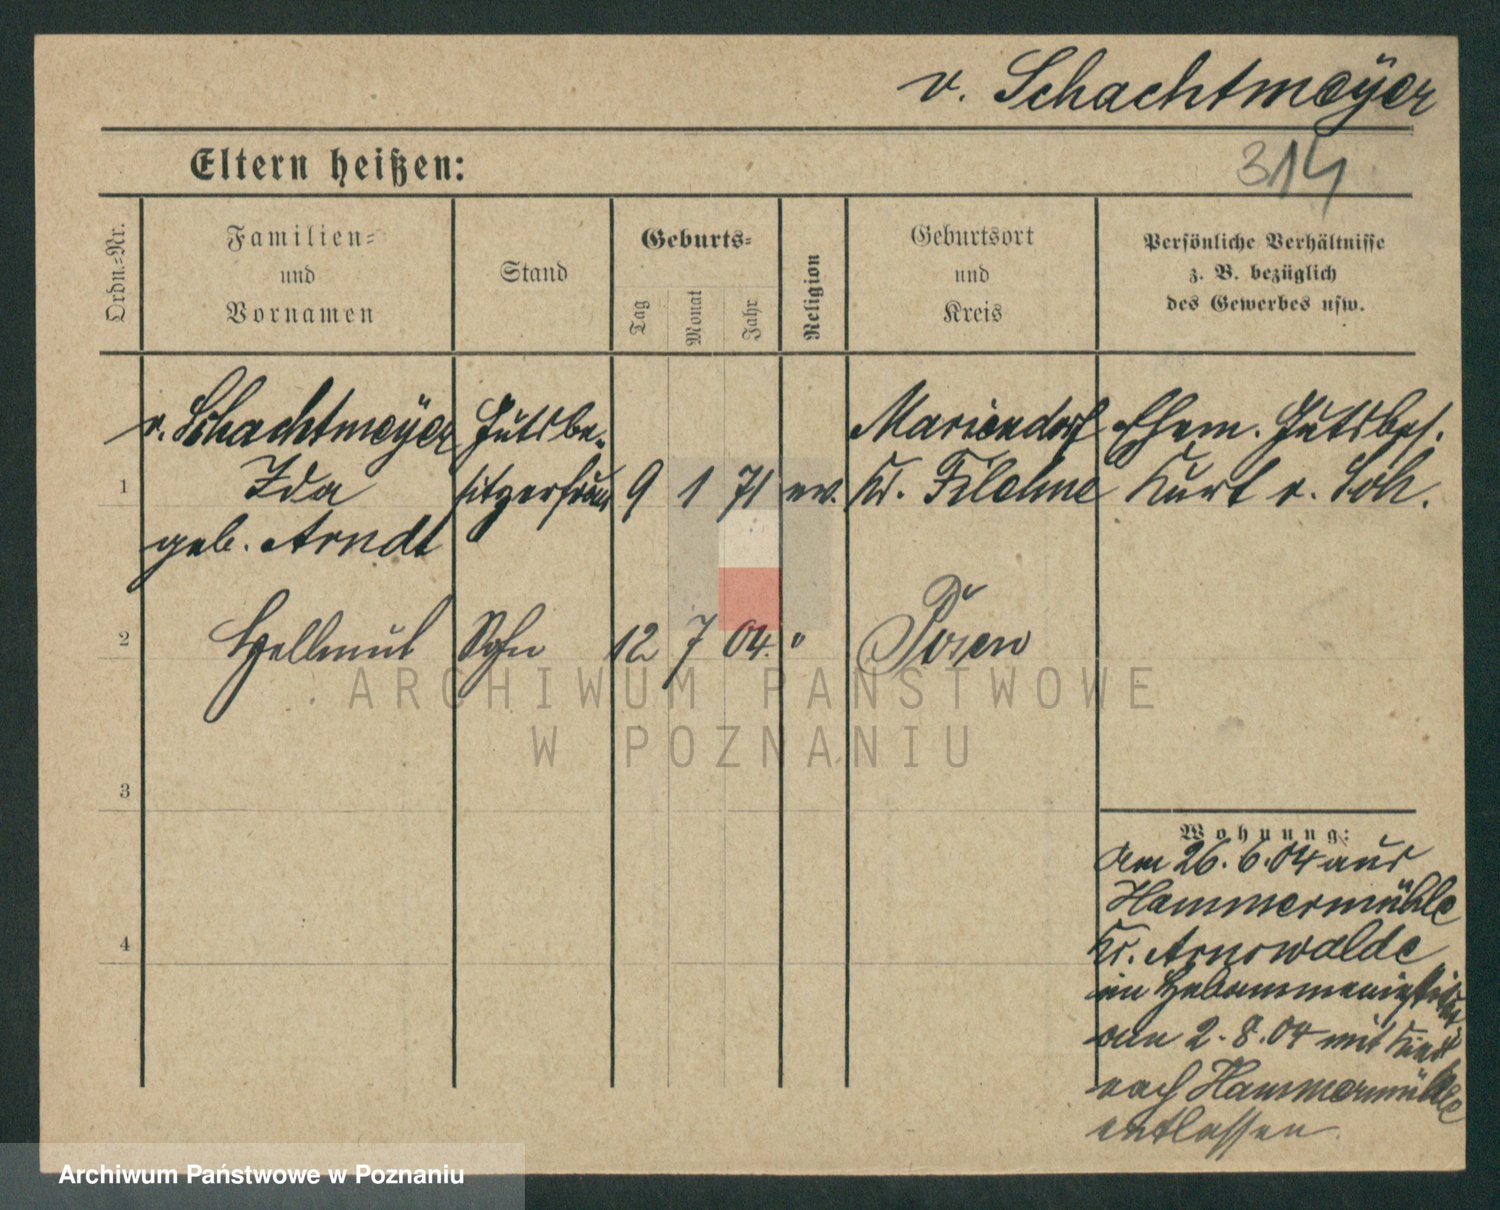 v. Schachtmeÿer
Eltern heißen:
314
Ordn.=Nr.
Familien=
und
Vornamen
Stand
Geburts=
Tag
Monat
Jahr
Religion
Geburtsort
und
Kreis
Persönliche Verhältnisse
z. B. bezüglich
des Gewerbes usw.
v. Schachtmeÿer Gutsbe- Mariendorf Ehem. Gutsbes.
1 Ida sitzersfrau 9 1 71 ev. Kr. Filehne Kurt v. Sch.
geb. Arndt
2 Hellmut Sohn 12 7 04. " Posen
ARCHIWUM PAŃSTWOWE
W POZNANIU
3
Wohnung:
Am 26. 6. 04 aus
Hammermühle
4 Kr. Arnswalde
im
am 2. 8. 04 mit Kind
nach Hammermühle
entlassen
Archiwum Państwowe w Poznaniu